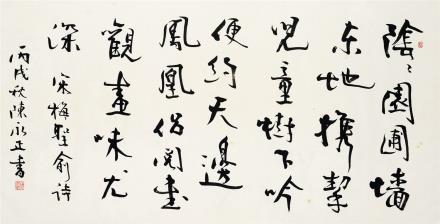 陰〻園圃墻
東地携挈
児童樹下吟
便約天邊
鳳凰侶閲書
觀畫味尤
深 宋梅聖俞詩
丙戌秋陳永正書